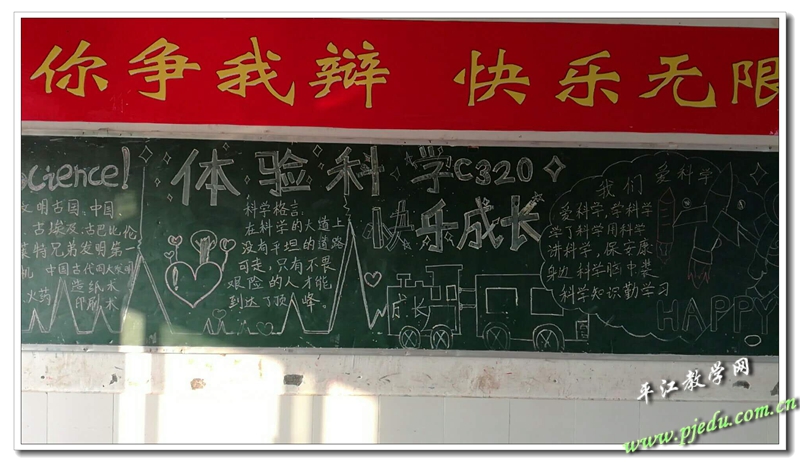 你争我辩 快乐无限
Science!
文明古国:中国、
古埃及、古巴比伦
莱特兄弟发明第一
机 中国古代四大发明
火药 造纸术
印刷术
体验科学C320
快乐成长
科学格言:
在科学的大道上
没有平坦的道路
可走,只有不畏
艰险的人才能
到达了顶峰。
成长
我们爱科学
爱科学,学科学
学了科学用科学
讲科学,保安康
身边科学胸中装
科学知识勤学习
HAPPY
平江教学网
www.pjedu.com.cn